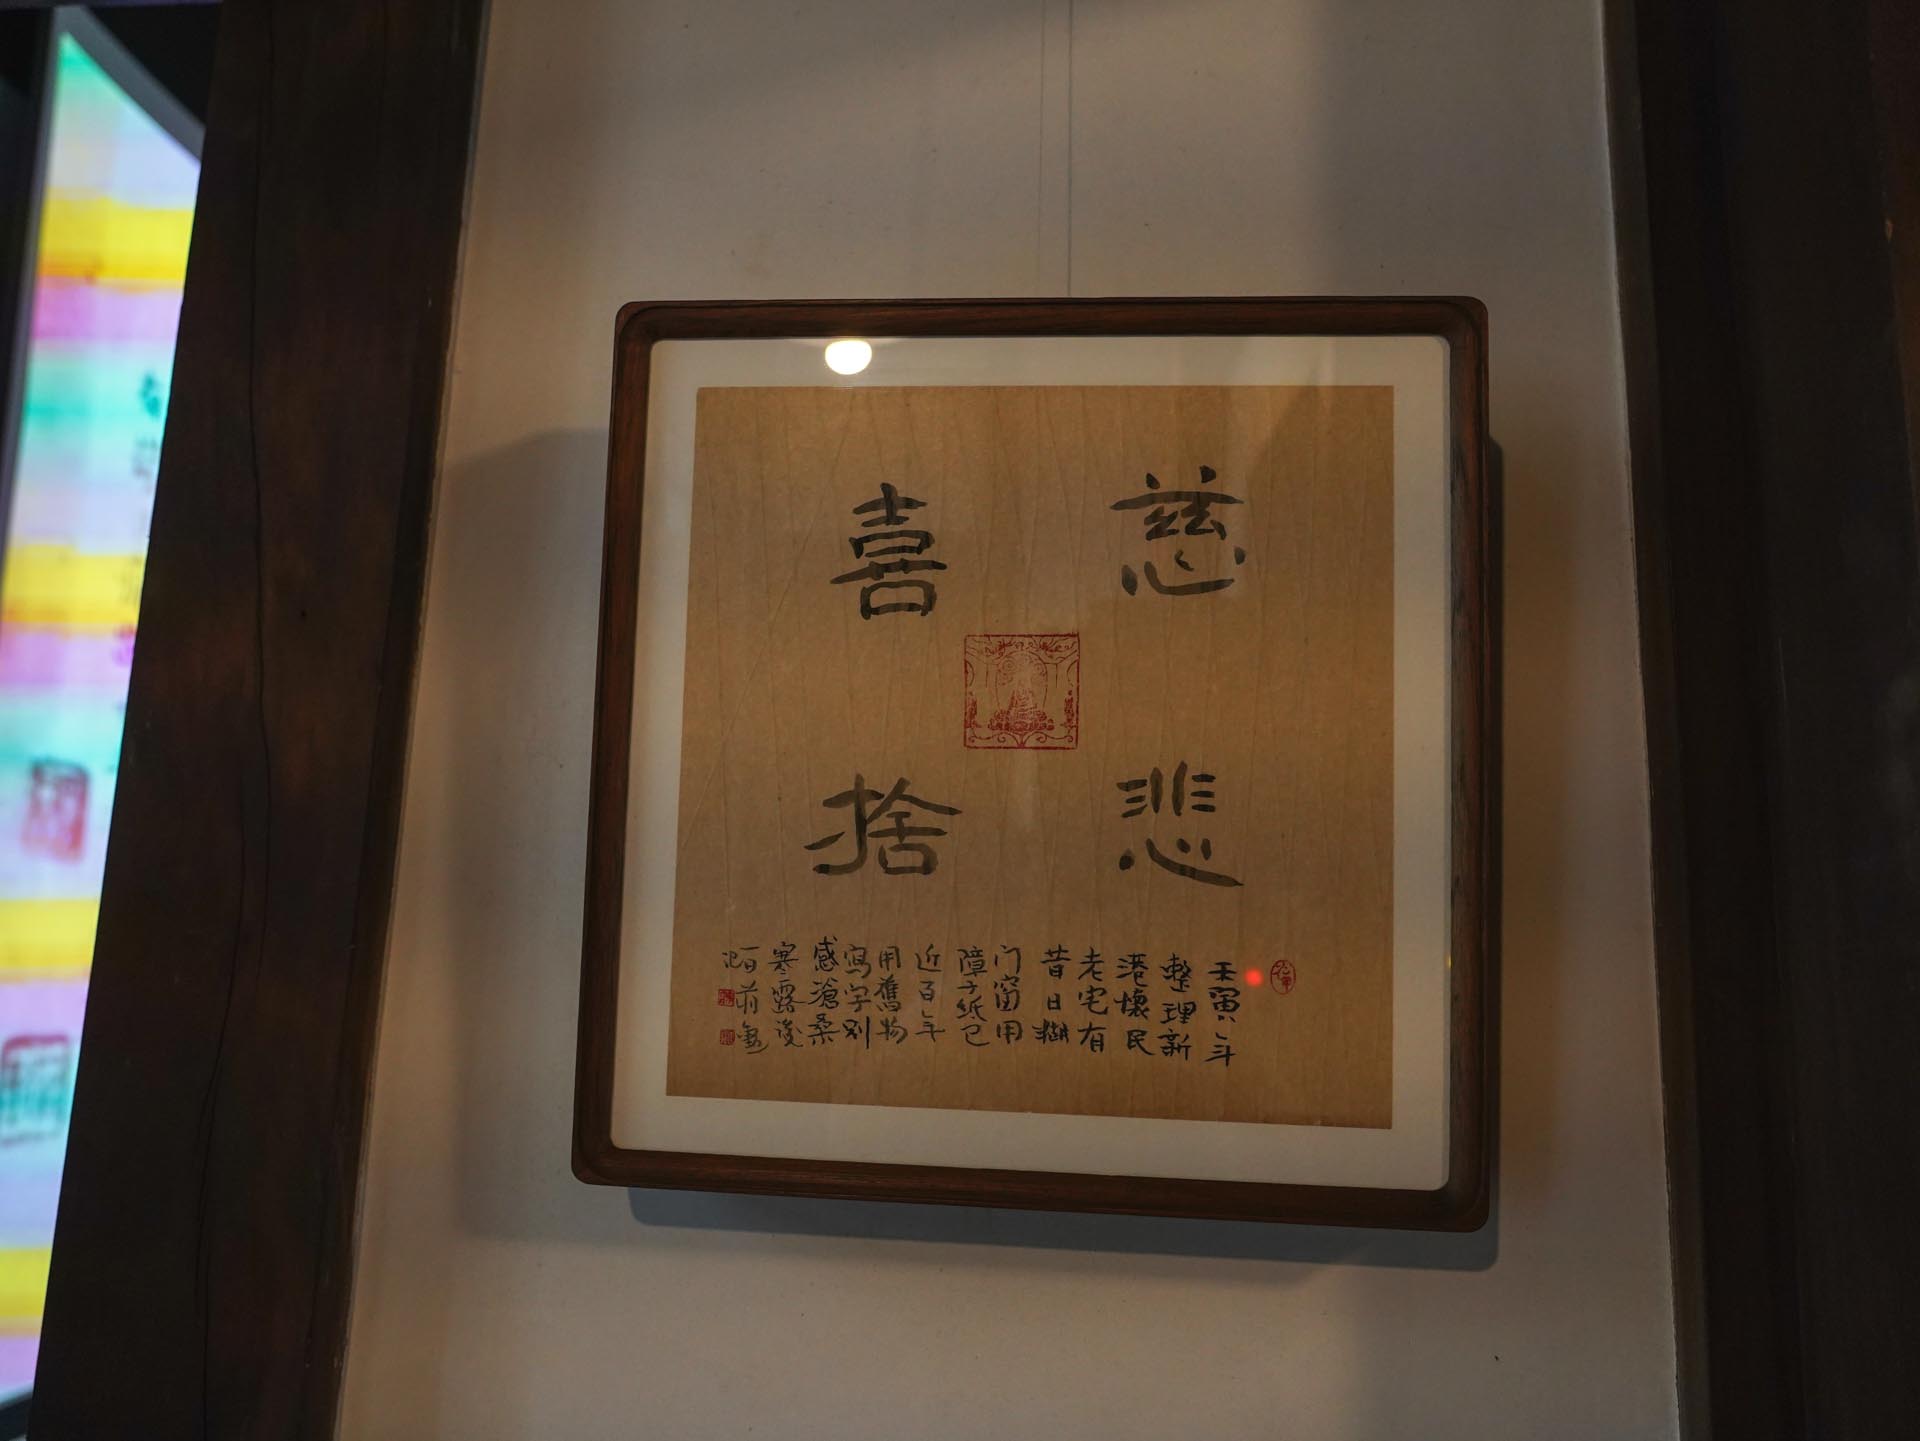 慈悲
喜捨
壬寅年
整理新
港懷民
老宅有
昔日糊
门窗用
障子紙已
近百年
用舊物
寫字别
感滄桑
寒露後
一日
記